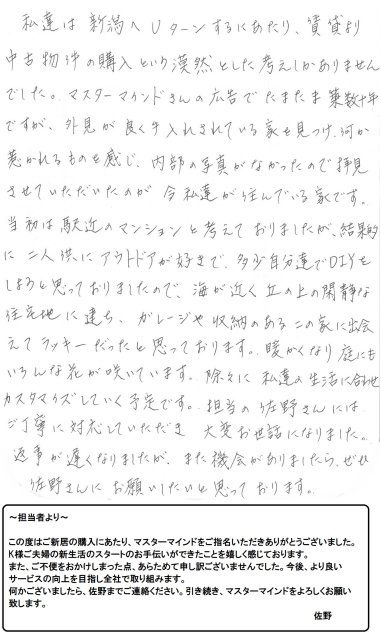 私達は新潟へUターンするにあたり、賃貸より
中古物件の購入という漠然とした考えしかありません
でした。マスターマインドさんの広告でたまたま築数十年
ですが、外見が良く手入れされている家を見つけ、何か
惹かれるものを感じ、内部の写真がなかったので拝見
させていただいたのが今私達が住んでいる家です。
当初は駅近のマンションと考えておりましたが、結果的
に二人供にアウトドアが好きで、多少自分達でDIYを
しようと思っておりましたので、海が近く丘の上の閑静な
住宅地に建ち、ガレージや収納のあるこの家に出会
えてラッキーだったと思っております。暖かくなり庭にも
いろんな花が咲いています。除々に私達の生活に合わせ
カスタマイズしていく予定です。担当の佐野さんには
ご丁寧に対応していただき 大変お世話になりました。
返事が遅くなりましたが、また機会がありましたら、ぜひ
佐野さんにお願いしたいと思っております。
～担当者より～
この度はご新居の購入にあたり、マスターマインドをご指名いただきありがとうございました。
K様ご夫婦の新生活のスタートのお手伝いができたことを嬉しく感じております。
また、ご不便をおかけしまった点、あらためて申し訳ございませんでした。今後、より良い
サービスの向上を目指し全社で取り組みます。
何かございましたら、佐野までご連絡ください。引き続き、マスターマインドをよろしくお願い
致します。
佐野